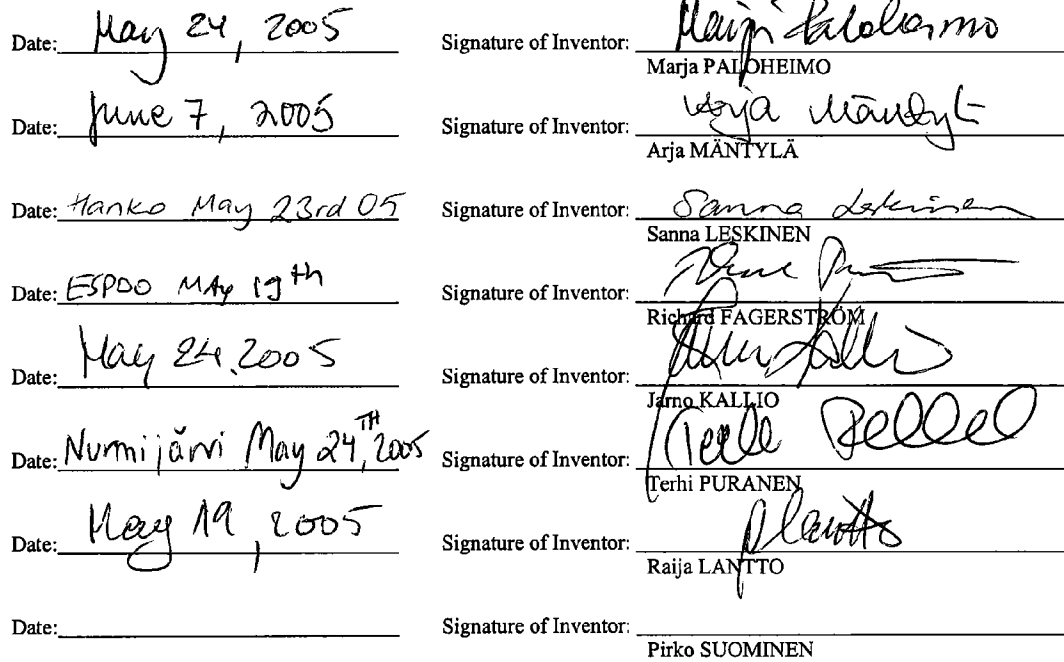 Date: May 24, 2005 Signature of Inventor: Marja Paloheimo
Marja PALOHEIMO
Date: June 7, 2005 Signature of Inventor: Arja Mäntylä
Arja MÄNTYLÄ
Date: Hanko May 23rd 05 Signature of Inventor: Sanna Leskinen
Sanna LESKINEN
Date: ESPOO MAy 19th Signature of Inventor:
Richard FAGERSTRÖM
Date: May 24, 2005 Signature of Inventor:
Jarno KALLIO
Date: Nurmijärvi May 24TH, 2005 Signature of Inventor:
Terhi PURANEN
Date: May 19, 2005 Signature of Inventor:
Raija LANTTO
Date: Signature of Inventor:
Pirko SUOMINEN